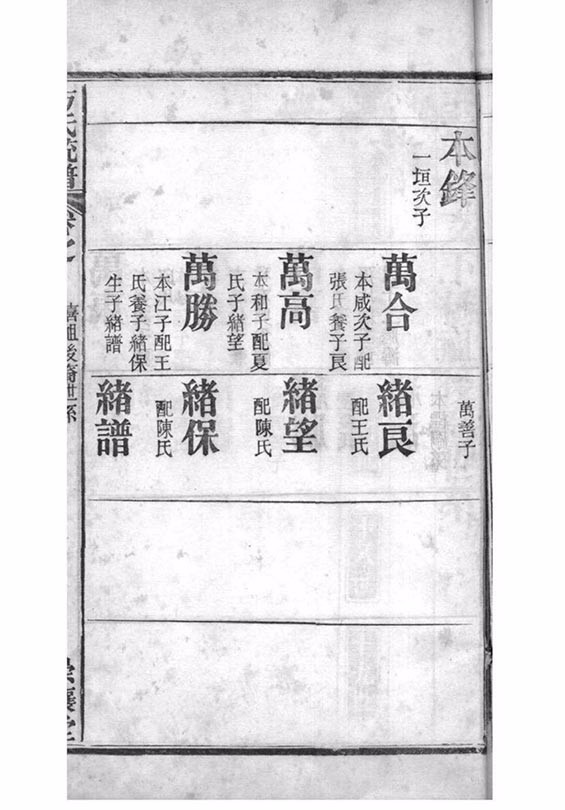 本鋒
一垣次子
萬合
本咸次子配
張氏養子良
萬高
本和子配夏
氏子緒望
萬勝
本江子配王
氏養子緒保
生子緒譜
萬善子
緒良
配王氏
緒望
配陳氏
緒保
配陳氏
緒譜
氏統譜
喜祖後裔世系